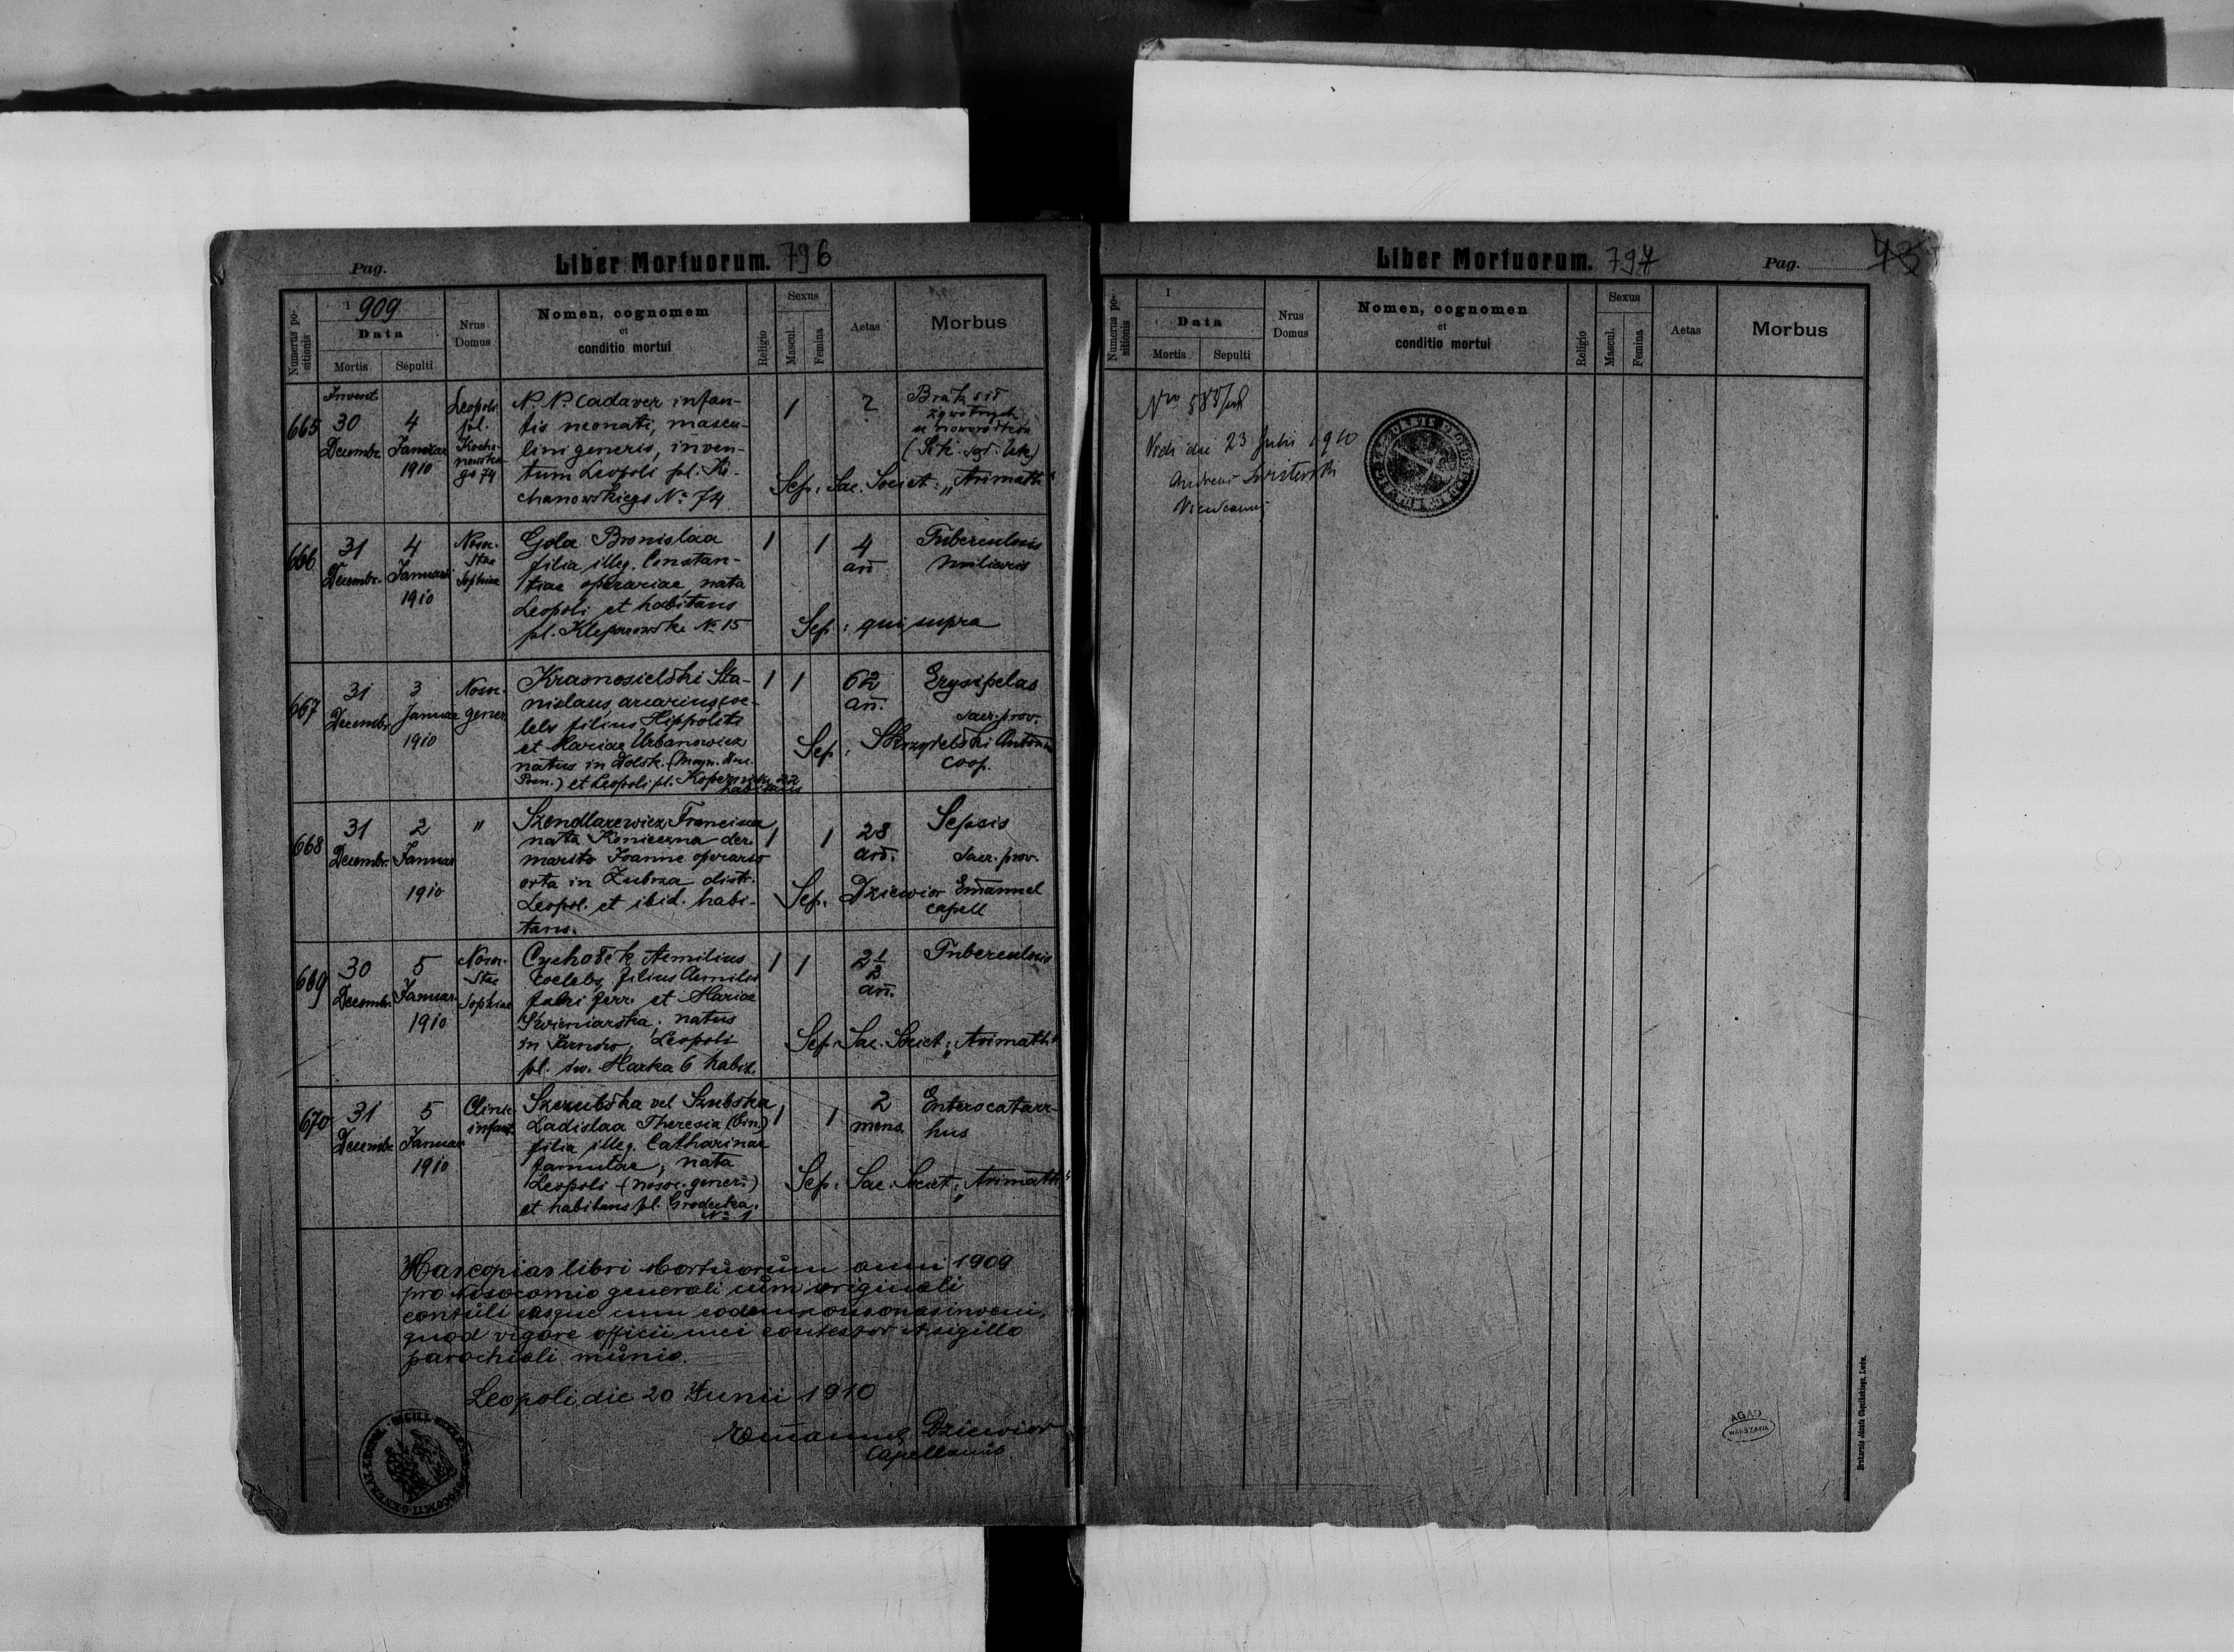 Pag.
Liber Mortuorum. 796
Numerus positionis
1909
Data
Mortis
Sepulti
Nrus Domus
Nomen, cognomem
et
conditio mortui
Religio
Sexus
Mascul.
Femina
Aetas
Morbus
665
Invent.
30
Decembr.
4
Januar
1910
Leopoli
pl.
Kocha-
nowskie-
go 74
N. N. Cadaver infan-
tis neonati, mascu-
lini generis, inven-
tum Leopoli pl. Ko-
chanowskiego No 74
1
?
Brak sił
żywotnych
u noworodków
Sep: Sac. Societ: „Arimath“
666
31
Decembr.
4
Januar
1910
Nosoc.
Stae
Sophiae
Gola Bronislaa
filia illeg. Constan-
tiae operariae, nata
Leopoli et habitans
pl. Kleparowska No 15
1
1
4
an
Tuberculosis
miliaris
Sep: qui supra
667
31
Decembr
3
Januar
1910
Nosoc.
gener
Krasnosielski Sta-
nislaus,
lebs filius Hippoliti
et Mariae Urbanowicz
natus in Dolsk.
Posn.) et Leopoli pl. Kopernika 22
habitans
1
1
62
an.
Erysipelas
Sacr. prov.
Sep. Skrzydelski Antonius
coop.
668
31
Decembr.
2
Januar
1910
"
Szendlarewicz Francisca
nata Konieczna der.
marito Joanne operario
orta in Zubrza distr.
Leopol. et ibid. habi-
tans.
1
1
28
an.
Sepsis
Sacr. prov.
Sep. Dziewior Emannel
capell
669
30
Decembr.
5
Januar.
1910
Nosoc.
Stae
Sophiae
Cychołek Aemilius
coelebs, filius Aemilii
fabri ferr. et Mariae
Skwieniarska; natus
in Tarnów, Leopoli
pl. św. Marka 6 habit.
1
1
2 1/2
an.
Tuberculosis
Sep. Sac. Societ: „Arimath“
670
31
Decembr
5
Januar
1910
Clinic.
infant.
Szczubska vel Szubska
Ladislaa Theresia (bin.)
filia illeg. Catharinae
famulae, nata
Leopoli (nosoc. gener.)
et habitans pl. Grodecka.
No 1
1
1
2
mens.
Enterocatarr-
hus
Sep: Sac. Societ: „Arimath“
Has copias libri Mortuorum anni 1909
pro Nosocomio generali cum originali
contuli easque cum eodem consonas inveni,
quod vigore officii mei contestor et sigillo
parochiali munio.
Leopoli die 20 Junii 1910
Emannuel Dziewior
Capellanus
Liber Mortuorum. 797
Pag.
Numerus positionis
1
Data
Mortis
Sepulti
Nrus
Domus
Nomen, cognomen
et
conditio mortui
Religio
Sexus
Mascul.
Femina
Aetas
Morbus
Vidi die 23 Julii 1910
AGAD
WARSZAWA
Drukarnia Józefa Chęcińskiego, Lwów.